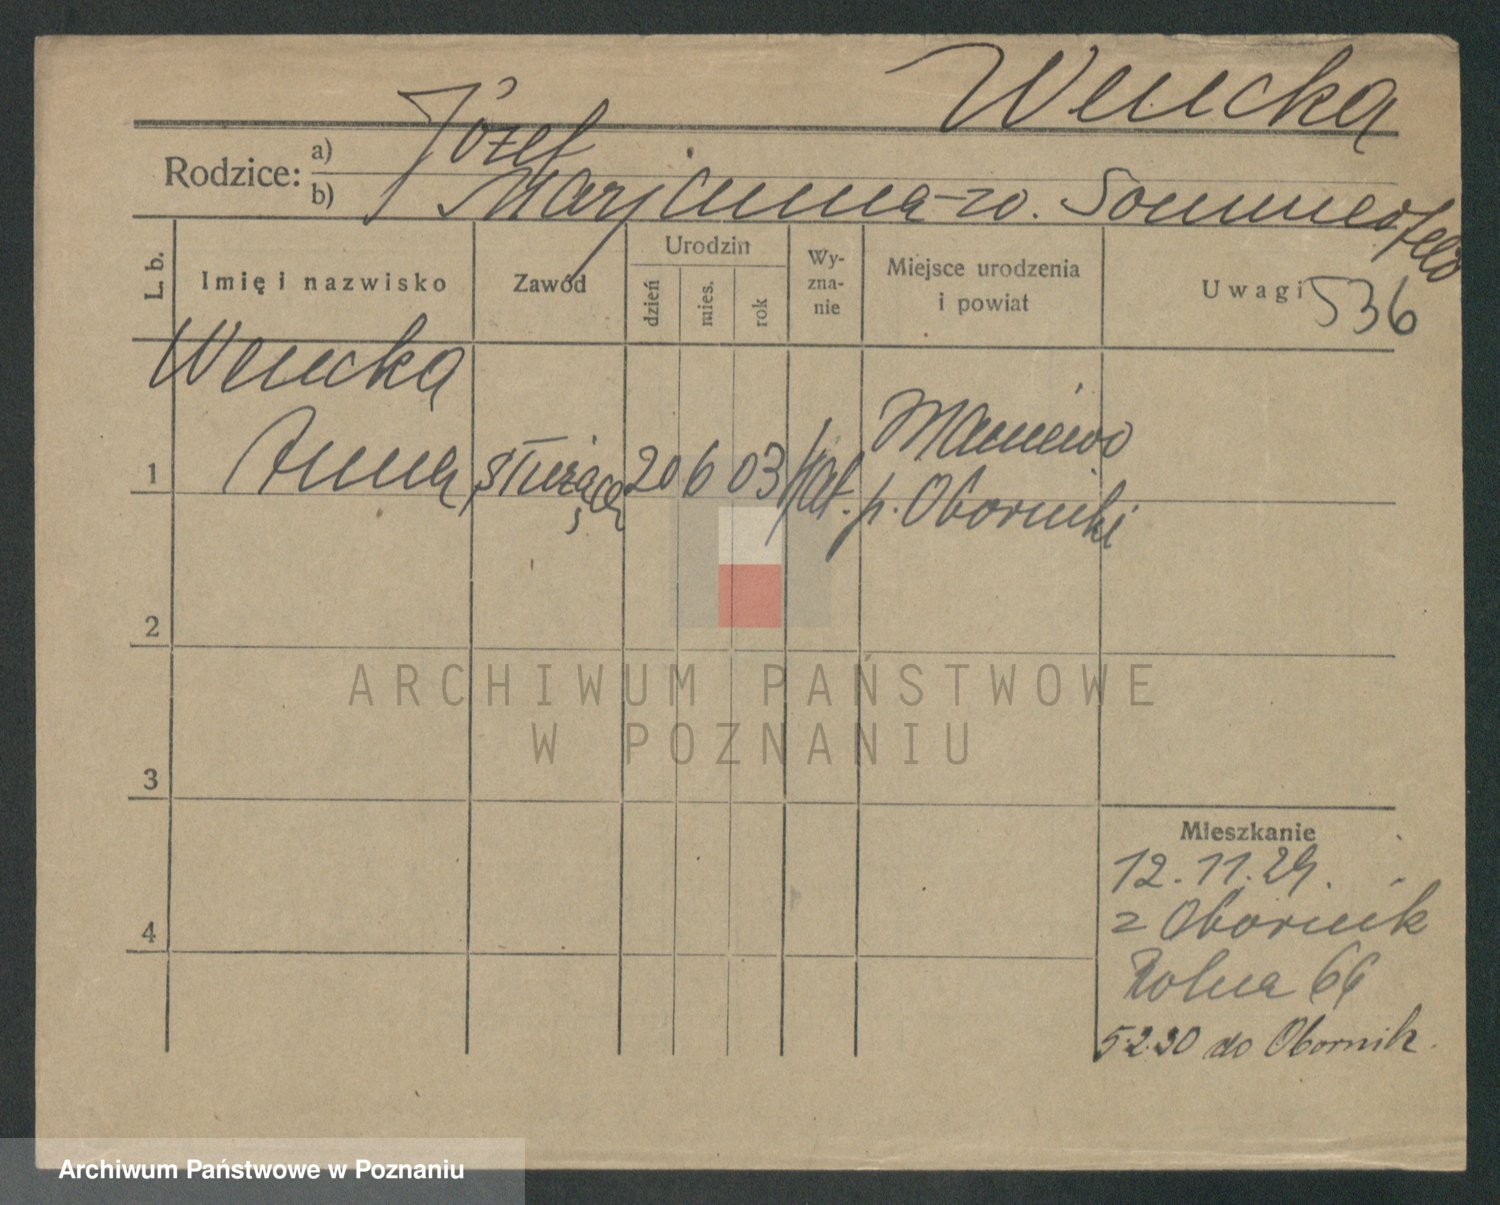 Wencka
Rodzice: a) Józef
b) Marjanna z d. Sommerfeld
L. b. Imię i nazwisko Zawód Urodzin dzień mies. rok Wy-zna-nie Miejsce urodzenia i powiat Uwagi 536
Wencka
1 Anna służąca 20 6 03 kat. Maniewo
p. Oborniki
2
3
4
Mieszkanie
12.11.29.
z Obornik
Rolna 66
5.2.30 do Obornik.
ARCHIWUM PAŃSTWOWE
W POZNANIU
Archiwum Państwowe w Poznaniu